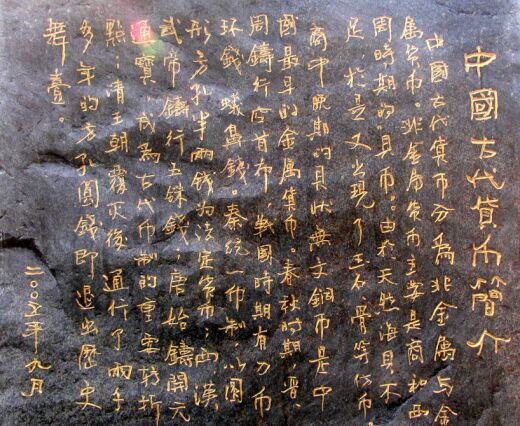 中國古代貨币簡介
中國古代貨币分爲非金属与金
属貨币。非金属貨币主要是商和西
周時期的"貝币。由於天然海貝不
足於是又出現了玉石、骨等仿币。
商中晚期的貝狀無文銅币是中
國最早的金属貨币。春秋時期，晋、
周鑄行空首布，戰國時期有刀币
环錢、蟻鼻錢。秦統一币制，以圓
形方孔半兩钱为法定貨币；西漢
武帝鑄行五銖錢，唐始鑄開元
通寳，成爲古代币制的重要轉折
點；清王朝霧灭後，通行了兩千
多年的方孔圓錢即退出歷史
舞臺。
二00五年九月